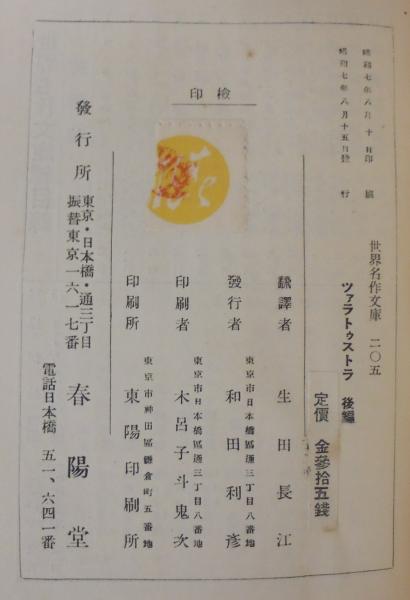 昭和七年八月十日印刷
昭和七年八月十五日發行
世界名作文庫 二〇五
ツァラトゥストラ 後編
定價 金參拾五錢
飜譯者 生田長江
東京市日本橋區通三丁目八番地
發行者 和田利彦
東京市日本橋區通三丁目八番地
印刷者 木呂子斗鬼次
東京市神田區鎌倉町五番地
印刷所 東陽印刷所
檢印
發行所
東京・日本橋・通三丁目
振替東京一六一七番
春陽堂
電話日本橋 五一、六四一番